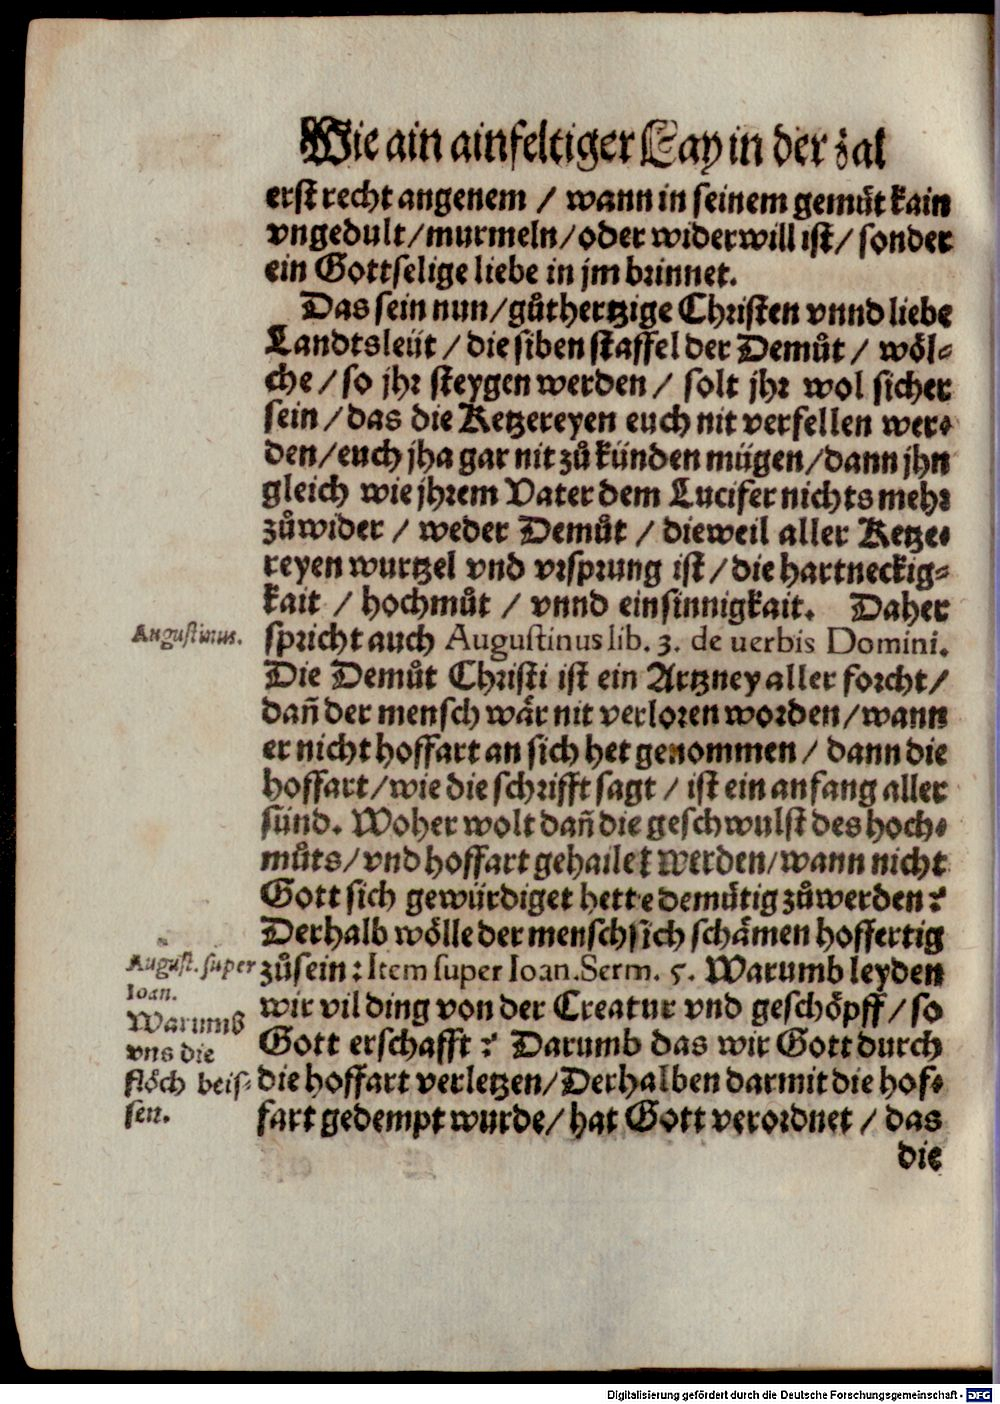 Wie ain ainfeltiger Lay in der zal
erst recht angenem / wann in seinem gemüt kain
vngedult/murmeln/oder widerwill ist/ sonder
ein Gottselige liebe in jm brinnet.
Das sein nun/gůthertzige Christen vnnd liebe
Landtsleüt / die siben staffel der Demůt / wöl-
che / so jhr steygen werden / solt jhr wol sicher
sein / das die Ketzereyen euch nit verfellen wer-
den/euch jha gar nit zů künden mügen/dann jhn
gleich wie jhrem Vater dem Lucifer nichts mehr
zůwider / weder Demůt / dieweil aller Ketze-
reyen wurtzel vnd vrsprung ist / die hartneckig-
kait / hochmůt / vnnd einsinnigkait. Daher
Augustinus.
spricht auch Augustinus lib. 3. de uerbis Domini.
Die Demůt Christi ist ein Artzney aller forcht/
dañ der mensch wär nit verloren worden/wann
er nicht hoffart an sich het genommen / dann die
hoffart/wie die schrifft sagt / ist ein anfang aller
sünd. Woher wolt dañ die geschwulst des hoch-
můts/vnd hoffart gehailet werden/wann nicht
Gott sich gewürdiget hette demütig zůwerden?
Derhalb wölle der mensch sich schämen hoffertig
August. super
Ioan.
zůsein: Item super Ioan. Serm. 5. Warumb leyden
wir vil ding von der Creatur vnd geschöpff / so
Warumb
vns die
flöch beis-
sen.
Gott erschafft? Darumb das wir Gott durch
die hoffart verletzen/Derhalben darmit die hof-
fart gedempt wurde/ hat Gott verordnet / das
die
Digitalisierung gefördert durch die Deutsche Forschungsgemeinschaft - DFG